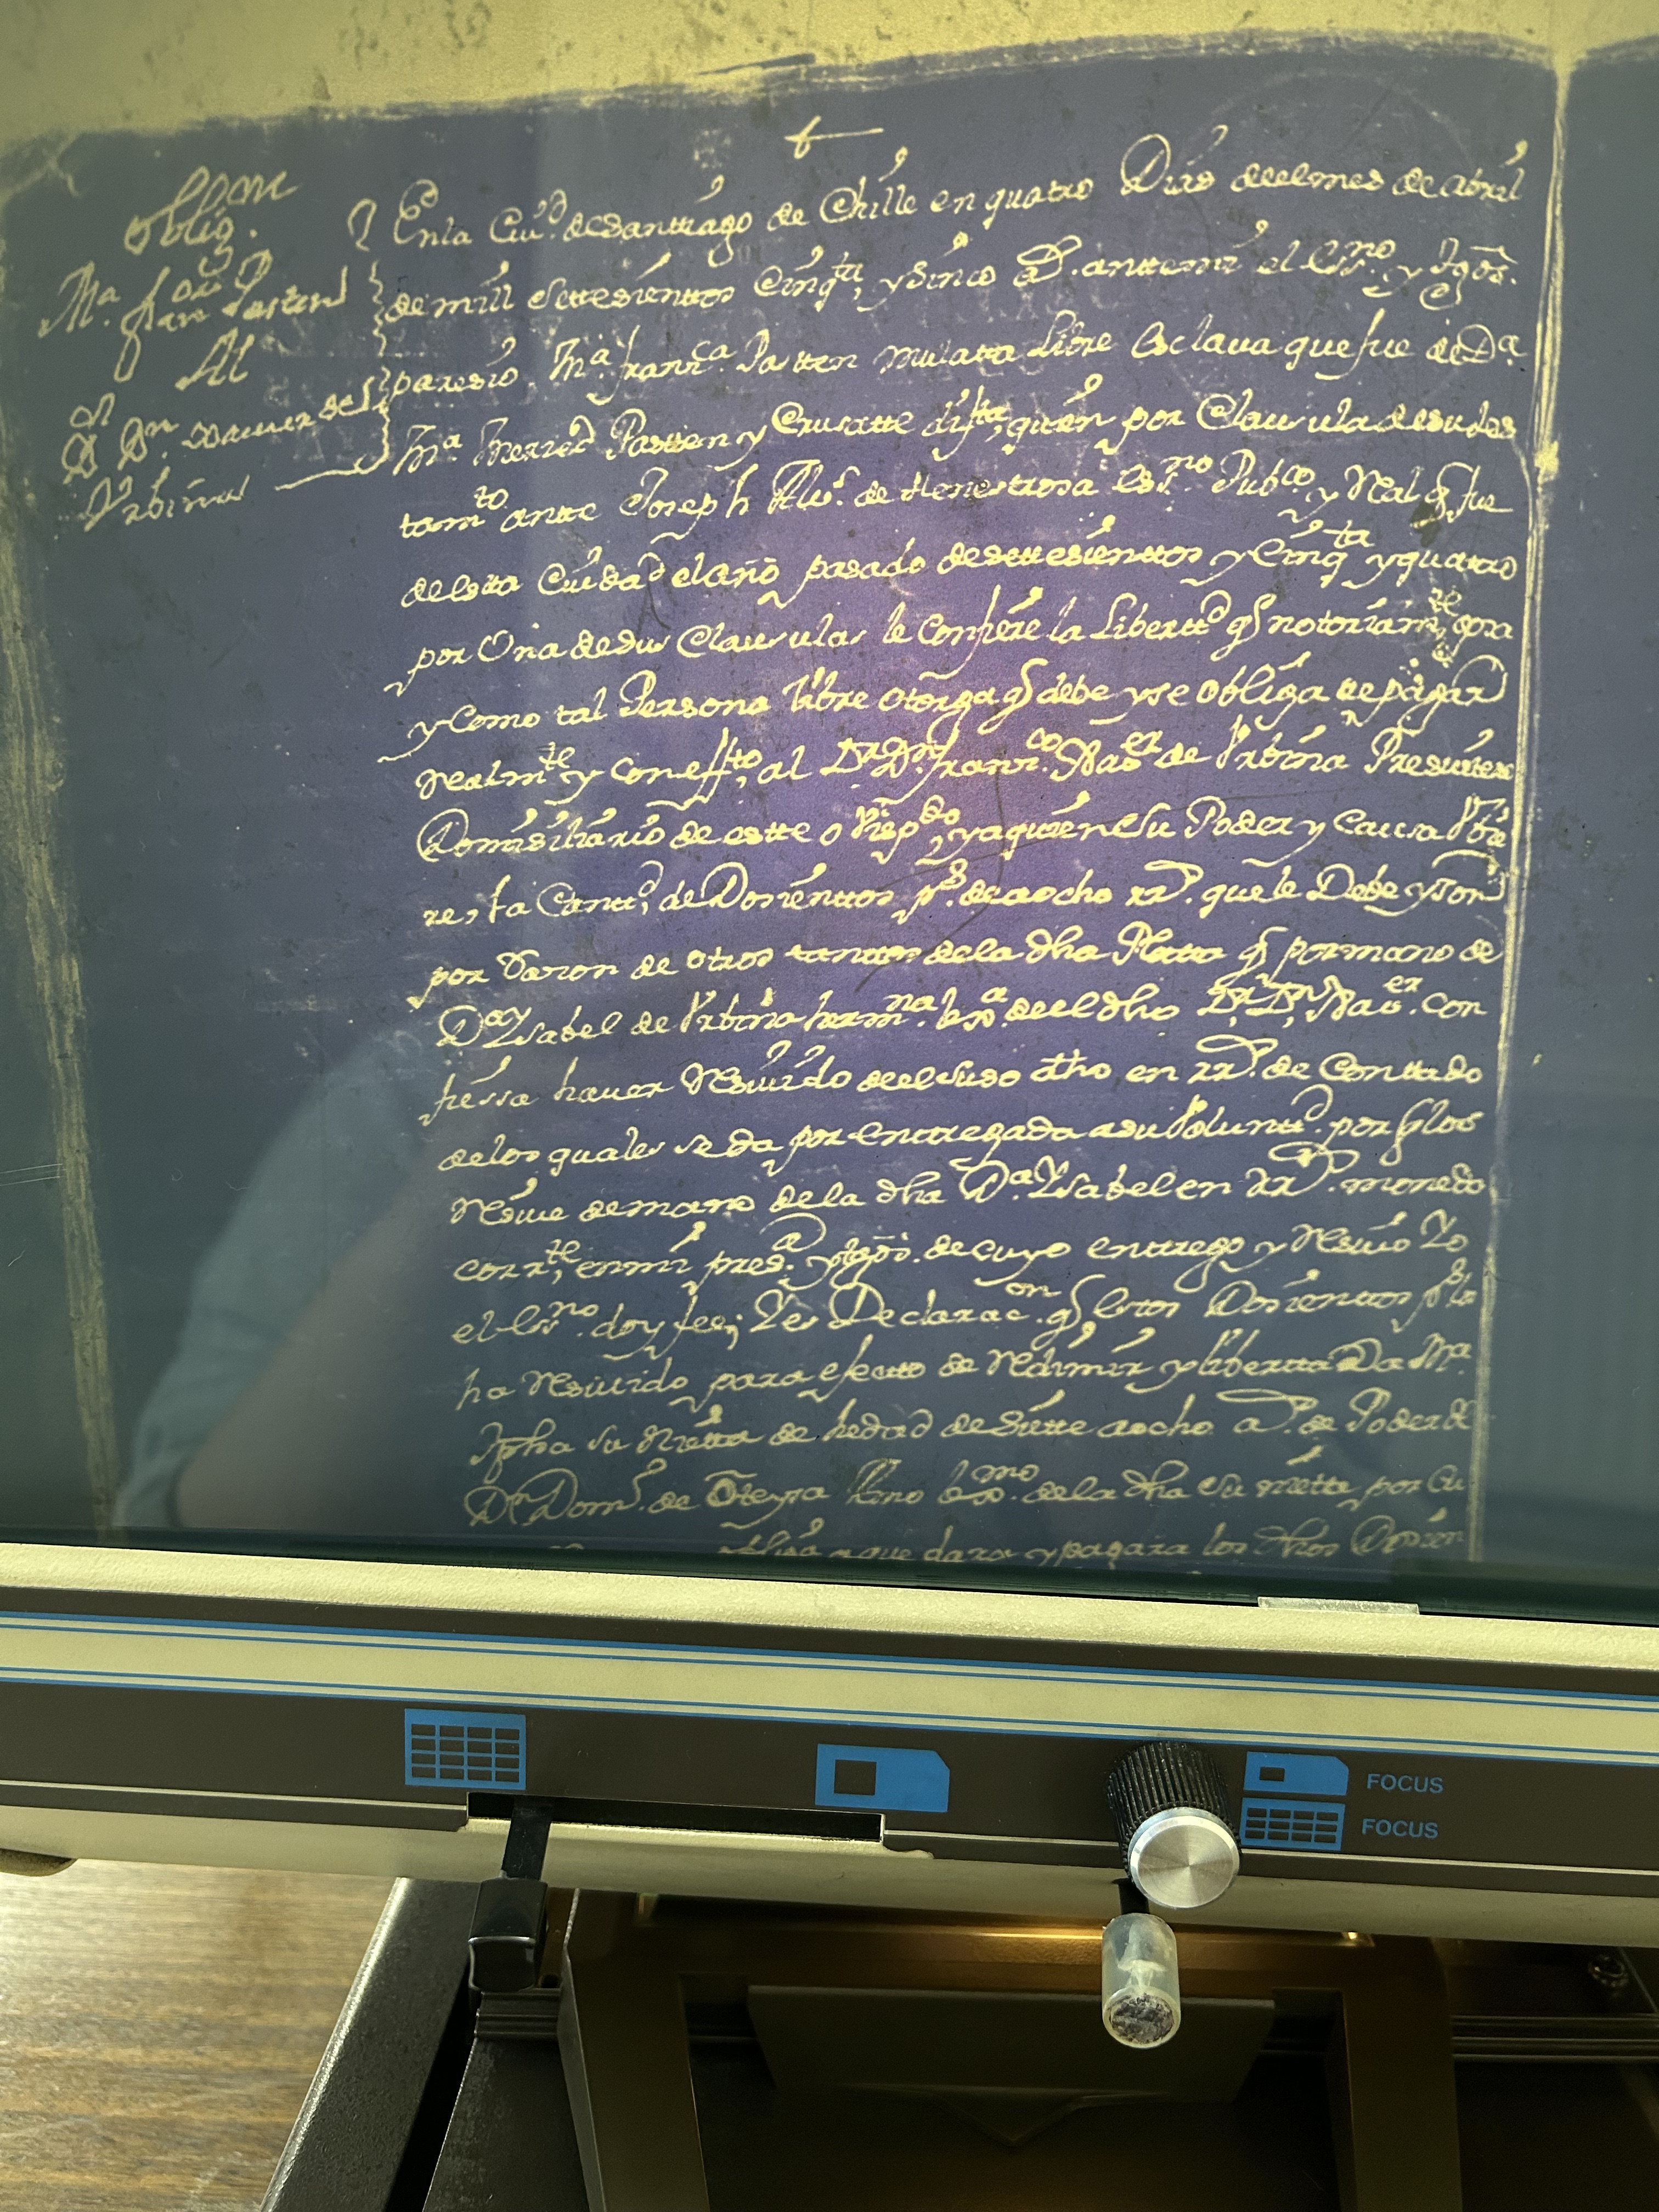 †
oblig.on
Ma. franca Pasten
Al
Dr Dn Xavier de
Vrbina
En la Ciud. de Santtiago de Chille en quatro Dias deel mes de abril
de mill settesienttos Cinqta, y Sinco as. antte mi el Essno. y tgos.
paresio Ma. franca. Pasten mulatta Libre Esclaua que fue de Da.
Ma. Merzed Pasten y difta, quien por Clausula de su tes
tamto antte Joseph Alvs. de Henestrosa Essno Pubco y Real q fue
de esta Ciudad el año pasado de settesienttos y Cinqta y quatro
por Vna de sus Clausulas le confiere la Libertd q notoriamte gosa
y Como tal Persona libre otorga q debe y se obliga de pagar
Realmte y con effto, al Dr Dn franco. Xavier de Vrbina Presvitero
Domisiliario de estte obispdo, y a quien su Poder y Causa
re, la Cantd, de Dosienttos ps. de a ocho rrs. que le Debe y son
por Razon de otros tanttos de la dha Platta q por mano de
Da Ysabel de Vrbina hermna. lexa. deel dho Dr, Dn, Xavier. con
fiessa hauer Resiuido deel suso dho en rrs. de Conttado
de los quales se da por enttregada a su Voluntd. por q los
Resiue de mano de la dha Da. Ysabel en rrs. moneda
corrte, en mi presa. y tgos. de cuyo enttrego y Resiuo Yo
el Essno. doy fee; Y es Declaraon. q estos Dosienttos ps los
ha Resiuido para efectto de Redimir y liberttar a Ma.
Jpha su Nietta de hedad de Siette a ocho as. de Poder de
Dn Domo. de Oteysa Amo lexmo. de la dha su nietta por Cu
obliga a que dara y pagara los dhos Dosien
FOCUS
FOCUS